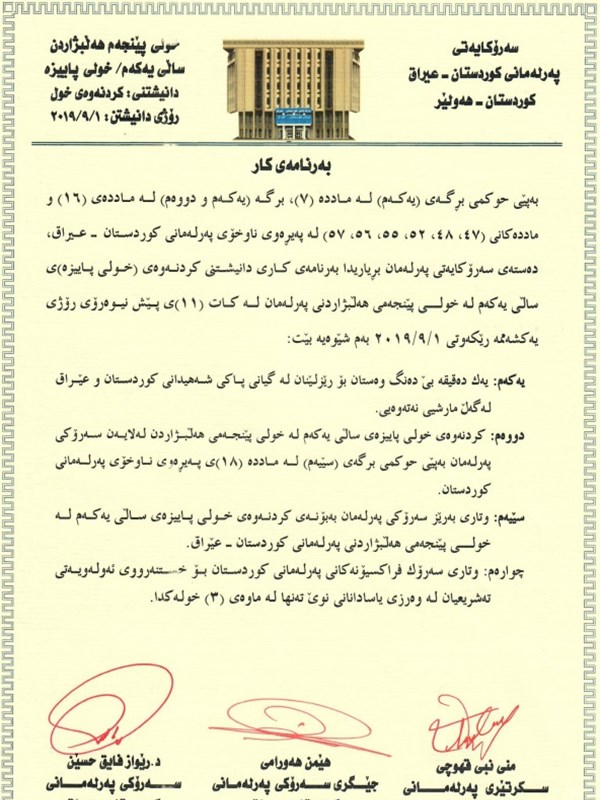 سەرۆکایەتی
پەرلەمانی کوردستان - عیراق
کوردستان - هەولێر
خولی پێنجەم هەڵبژاردن
ساڵی یەکەم/ خولی پاییزە
دانیشتنی: کردنەوەی خول
رۆژی دانیشتن: ٢٠١٩/٩/١
بەرنامەی کار
بەپێی حوکمی برگەی (یەکەم) لە ماددە (٧)، برگە (یەکەم و دووەم) لە ماددەی (١٦) و
ماددەکانی (٤٧، ٤٨، ٥٢، ٥٥، ٥٦، ٥٧) لە پەیرەوی ناوخۆی پەرلەمانی کوردستان - عیراق،
دەستەی سەرۆکایەتی پەرلەمان بریاریدا بەرنامەی کاری دانیشتنی کردنەوەی (خولی پاییزە)ی
ساڵی یەکەم لە خولی پێنجەمی هەڵبژاردنی پەرلەمان لە کات (١١)ی پێش نیوەرۆی رۆژی
یەکشەممە رێکەوتی ٢٠١٩/٩/١ بەم شێوەیە بێت:
یەکەم: یەك دەقیقە بێ دەنگ وەستان بۆ رێزلێنان لە گیانی پاکی شەهیدانی کوردستان و عێراق
لەگەڵ مارشی نەتەوەیی.
دووەم: کردنەوەی خولی پاییزەی ساڵی یەکەم لە خولی پێنجەمی هەڵبژاردن لەلایەن سەرۆکی
پەرلەمان بەپێی حوکمی برگەی (سێیەم) لە ماددە (١٨)ی پەیرەوی ناوخۆی پەرلەمانی
کوردستان.
سێیەم: وتاری بەرێز سەرۆکی پەرلەمان بەبۆنەی کردنەوەی خولی پاییزەی ساڵی یەکەم لە
خولی پێنجەمی هەڵبژاردنی پەرلەمانی کوردستان - عێراق.
چوارەم: وتاری سەرۆك فراکسیۆنەکانی پەرلەمانی کوردستان بۆ خستنەرووی ئەولەویەتی
تەشریعیان لە وەرزی یاسادانانی نوێ تەنها لە ماوەی (٣) خولەکدا.
منی نبی قهوچی
سکرتێری پەرلەمانی
هێمن هەورامی
جێگری سەرۆکی پەرلەمانی
د.رێواز فایق حسێن
سەرۆکی پەرلەمانی